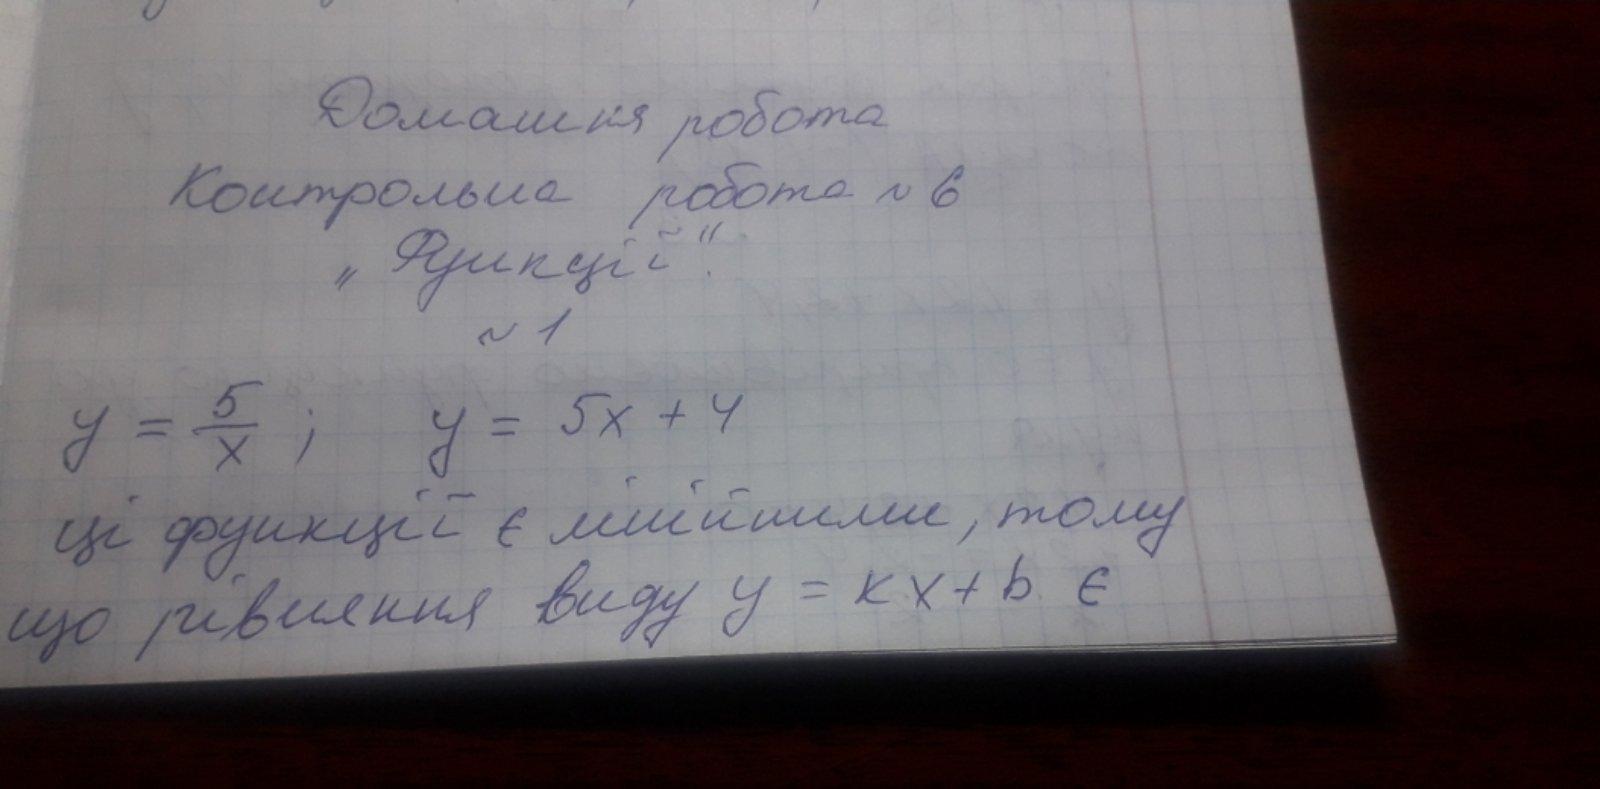 Домашня робота
Контрольна робота ~ 6
„Функції“.
~ 1
y = 5/x ; y = 5x + 4
ці функції є лінійними, тому
що рівняння виду y = kx + b є